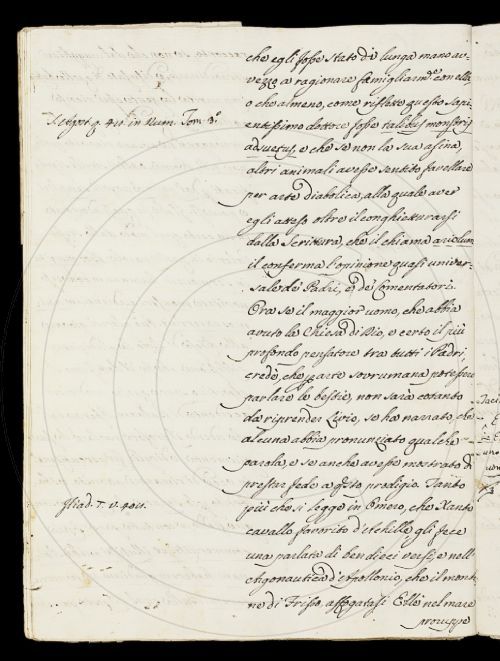 che egli fosse stato di lunga mano av-
vezzo a ragionare famigliarm.te con ella,
o che almeno, come riflette questo sapi-
entissimo dottore fosse talibus monstris
Vetgnt. q. 410. in Num. Tom. 3.º
aduetus, e che se non la sua asina,
altri animali avesse sentito favellare
per arte diabolica, alla quale aver
egli atteso oltre il conghietturarsi
dalla Scrittura, che il chiama ariolum,
il conferma l'opinione quasi univer-
sale de Padri, e de Comentatori.
Ora se il maggior uomo, che abbia
avuto la Chiesa di Dio, e certo il più
profondo pensatore tra tutti i Padri,
credè, che p arte sovrumana potessero
parlare le bestie, non sarà cotanto
da riprender Livio, se ha narrato, che
alcuna abbia pronunciato qualche
parola, e se anche avesse mostrato di
prestar fede a q.sto prodigio. Tanto
più che si legge in Omero, che Xanto
Iliad. T. v. 404.
cavallo favorito d'Achille gli fece
una parlata di ben dieci versi; e nell'
Argonautica d'Apollonio, che il mont-
ne di Frisso, affogatasi Elle nel mare
proruppe